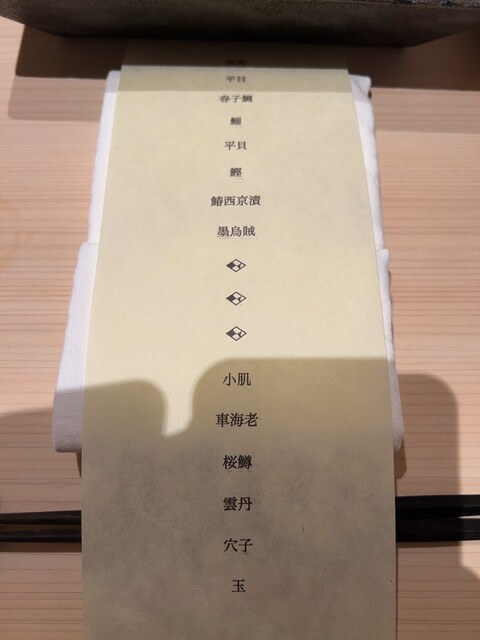 平貝
春子鯛
鰯
平貝
鰹
鰆西京漬
墨烏賊
小肌
車海老
桜鱒
雲丹
穴子
玉